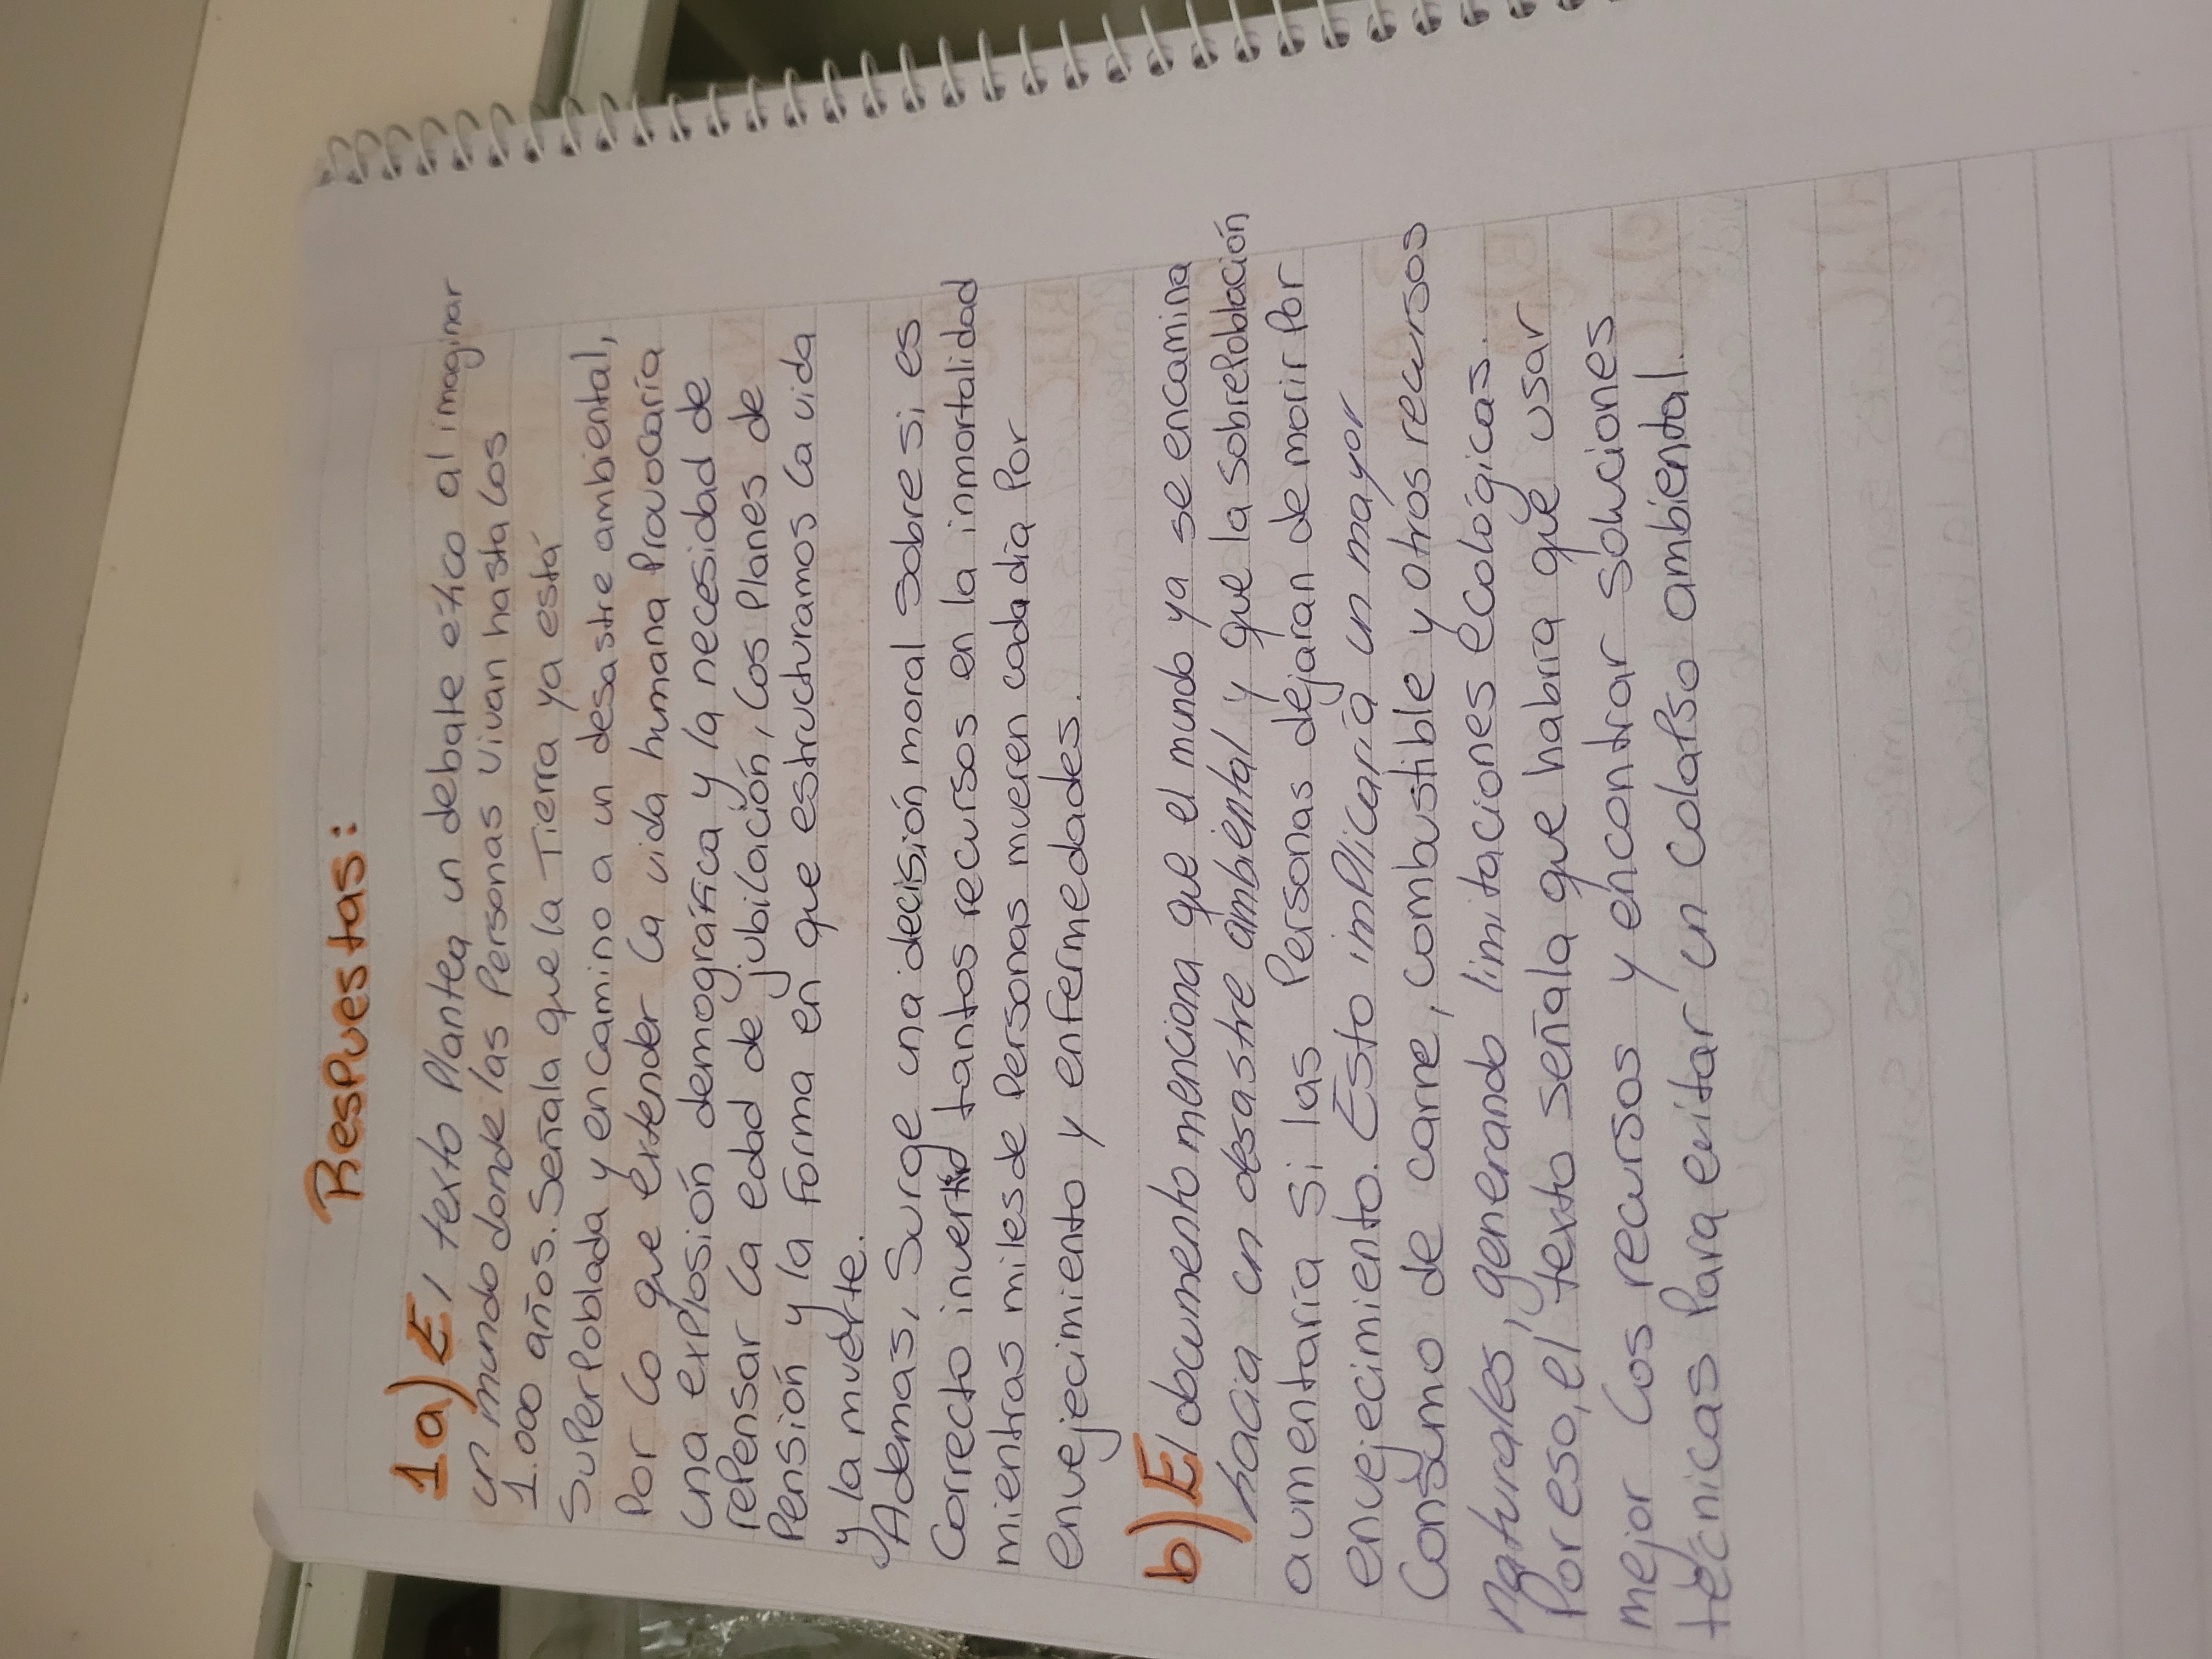 Respuestas:
1a) El texto Plantea un debate etico al imaginar
un mundo donde las Personas vivan hasta los
1.000 años. Señala que la Tierra ya está
SuPerPoblada y en camino a un desastre ambiental,
Por lo que extender la vida humana Provocaría
una explosión demográfica y la necesidad de
rePensar la edad de jubilación, los Planes de
Pensión y la Forma en que estructuramos la vida
y la muerte.
Ademas, Surge una decisión moral sobre si es
Correcto invertir tantos recursos en la inmortalidad
mientras miles de Personas mueren cada día Por
envejecimiento y enfermedades.
b) El documento menciona que el mundo ya se encamina
hacia un desastre ambiental y que la sobrePoblación
aumentaría si las Personas dejaran de morir Por
envejecimiento. Esto imPlicaría un mayor
Consumo de carne, combustible y otros recursos
naturales, generando limitaciones ecológicas.
Por eso, el texto señala que habría que usar
mejor los recursos y encontrar soluciones
técnicas Para evitar un colaPso ambiental.